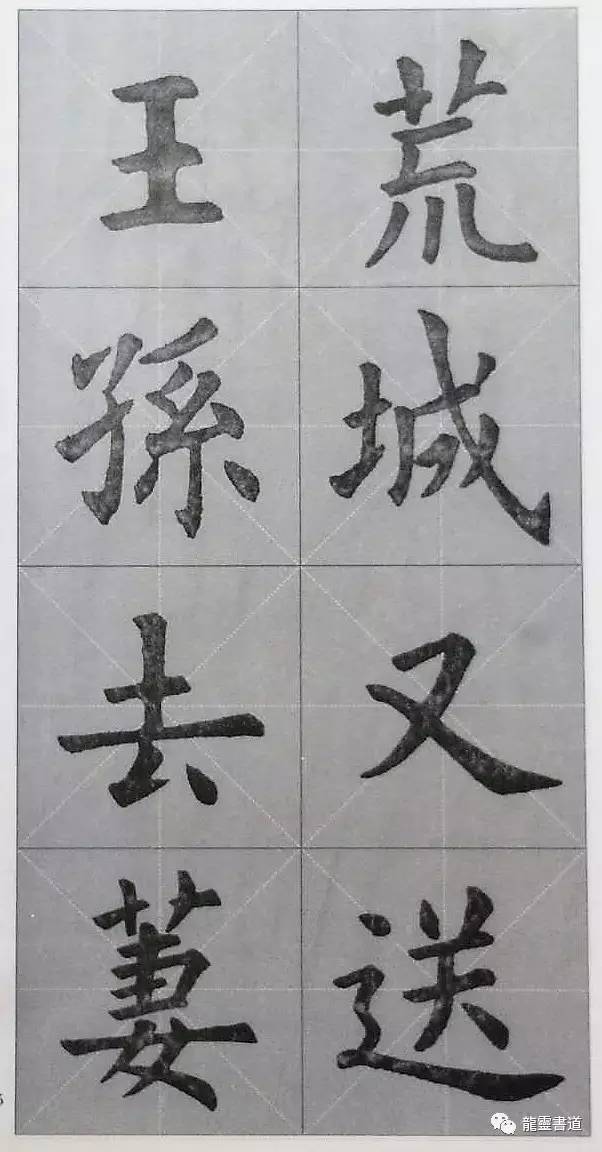 荒城又送
王孫去萋
龍靈書道